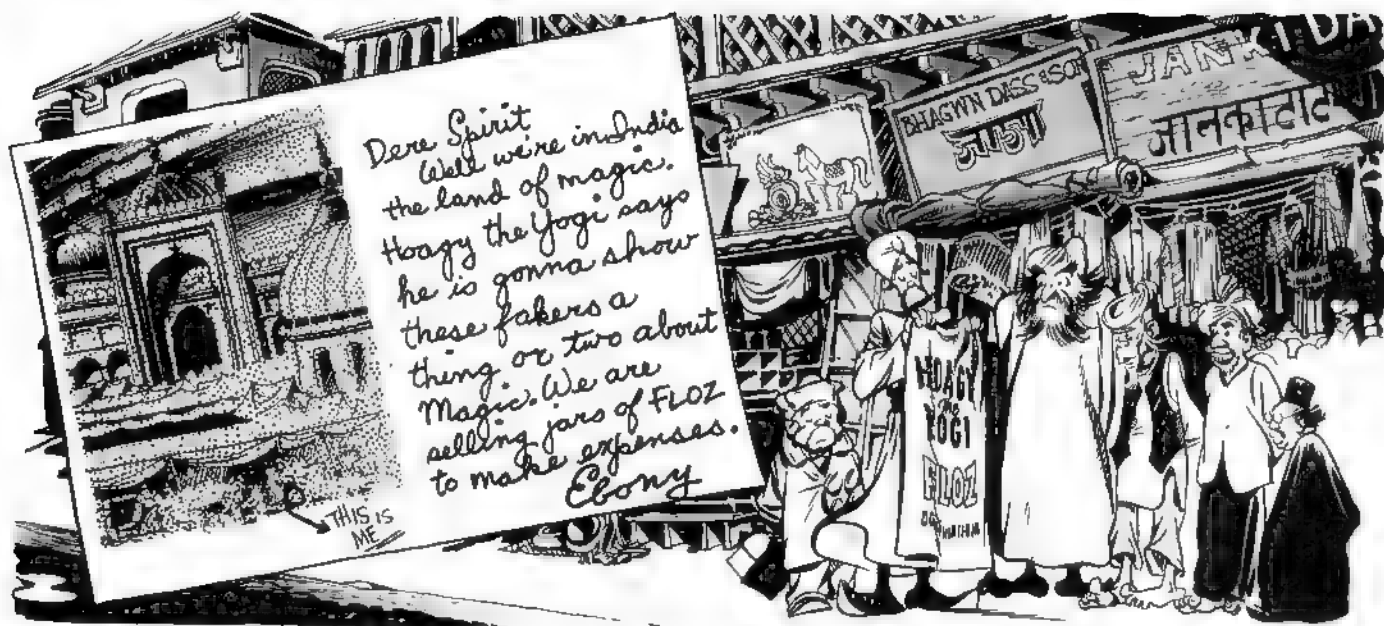 Dere Spirit
Well we're in India
the land of magic.
Hoagy the Yogi says
he is gonna show
these fakers a
thing or two about
Magic. We are
selling jars of FLOZ
to make expenses.
Ebony
THIS IS
ME
BHAGWN DASS & SON
JANKI DA
जानकादाट
HOAGY
THE
YOGI
FLOZ